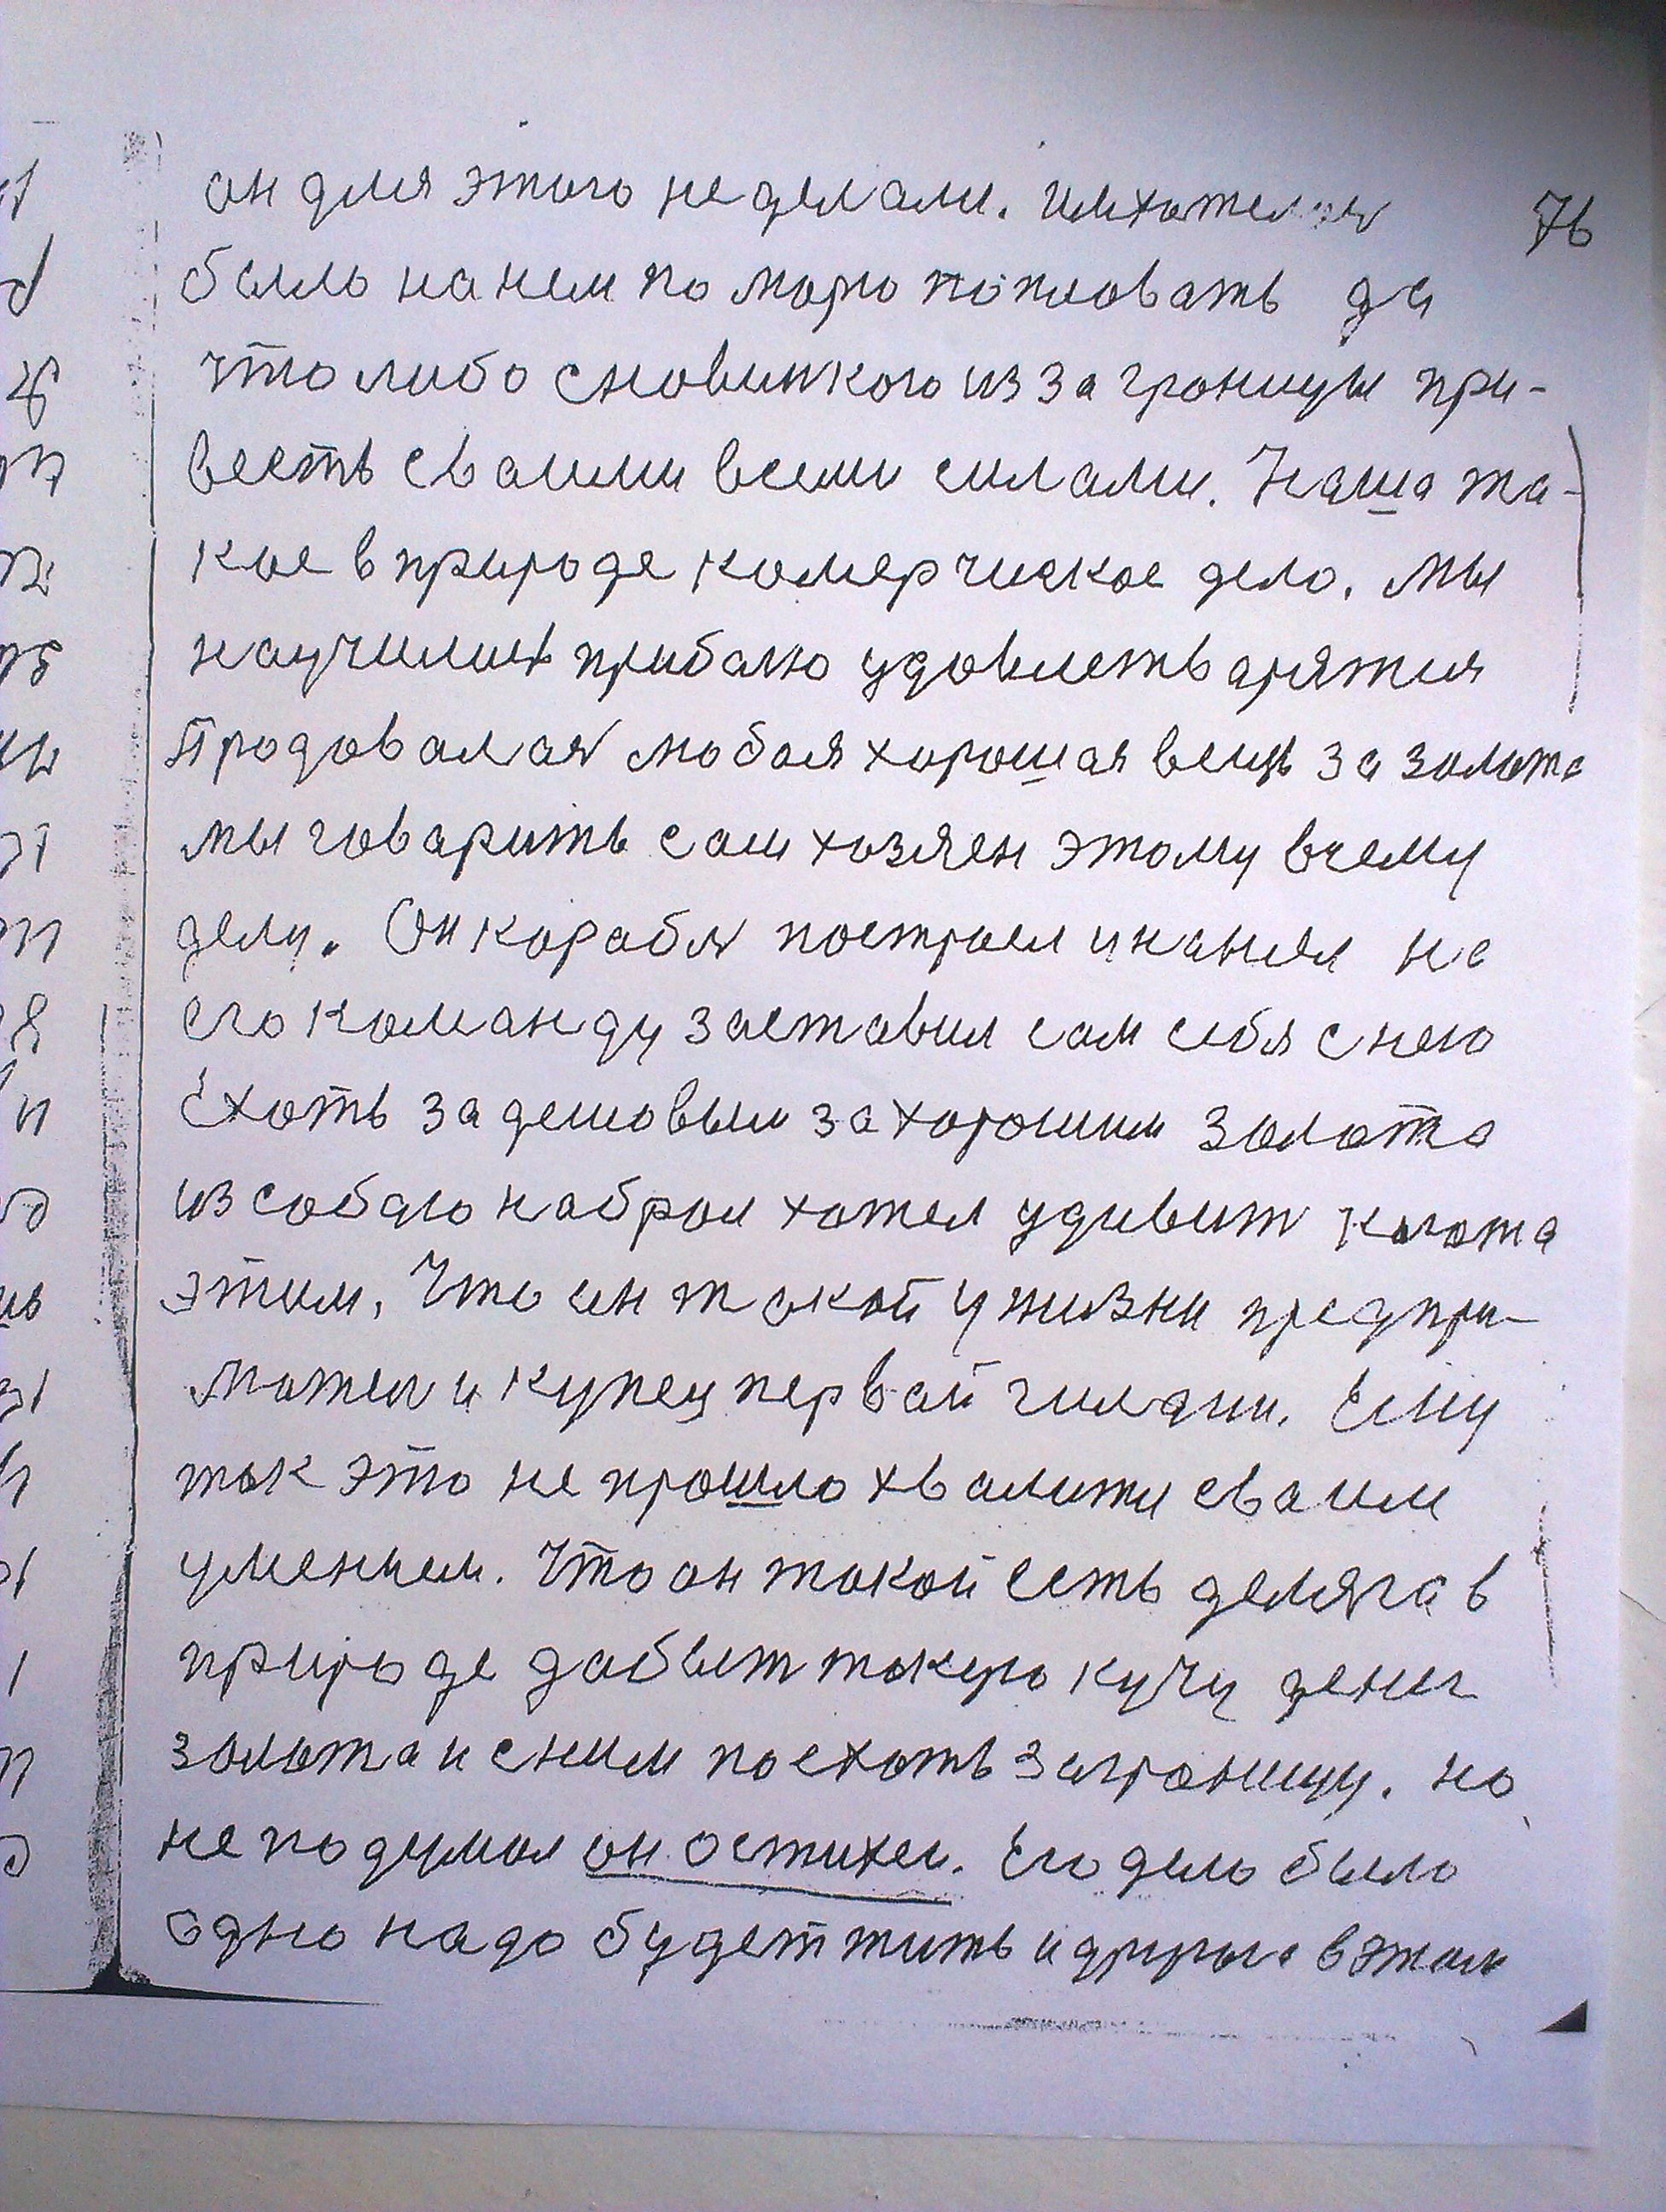 он для этого не делали. Им хотелося
76
было на нем по морю попловать да
что либо сновинкого из за гроницы при-
весть сваими всеми силами. Наша та-
кое в природе комерчиское дело. Мы
научились прибалю удовлетьварятия
Продовалая любоя хорошая вещь за золота
мы говарить сам хозяен этому всему
делу. Он корабля построел и нанял не
его команду заставил сам себя с нею
Ехоть за дешовым за хорошим золота
из собаю набрал хотел удивит когота
этим, Что он такой у жизни предпри-
мател и купец первай гилдии. Ему
так это не прошло хвалити сваим
уменьем. Что он такой есть деляга в
природе добыт токую кучу денег
золота и сним поехоть заграницу. Но
не подумал он остихеи. Его дело было
одно надо будет жить и другие в этом